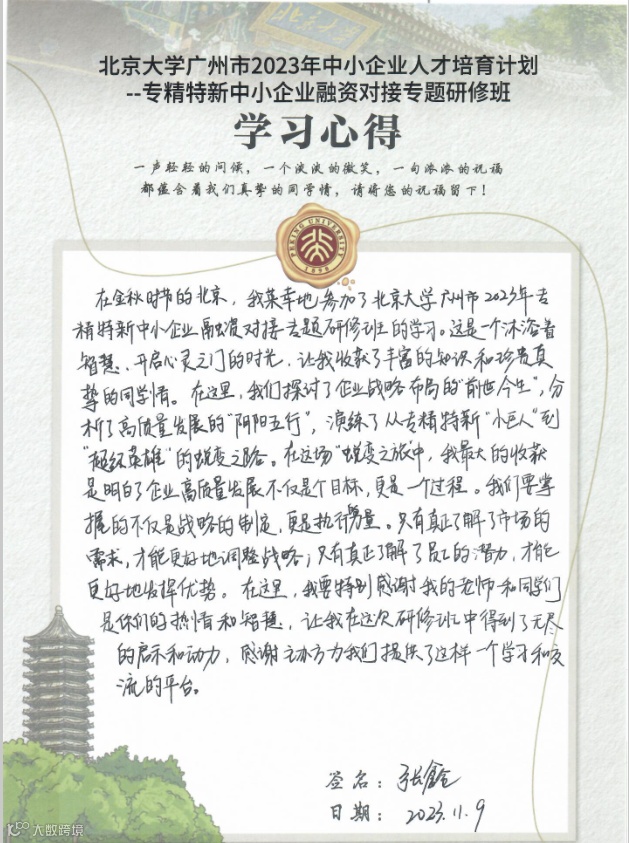 北京大学广州市2023年中小企业人才培育计划
--专精特新中小企业融资对接专题研修班
学习心得
一声轻轻的问候，一个淡淡的微笑，一句浓浓的祝福
都蕴含着我们真挚的同学情，请将您的祝福留下！
PEKING UNIVERSITY
1898
在金秋时节的北京，我荣幸地参加了北京大学广州市2023年专
精特新中小企业融资对接专题研修班的学习。这是一个沐浴着
智慧、开启心灵之门的时光，让我收获了丰富的知识和珍贵真
挚的同学情。在这里，我们探讨了企业战略布局的"前世今生"，分
析了高质量发展的"阴阳五行"，演练了从专精特新"小巨人"到
"超级英雄"的蜕变之路。在这场"蜕变之旅"中，我最大的收获
是明白了企业高质量发展不仅是个目标，更是一个过程。我们要掌
握的不仅是战略的制定，更是执行力量。只有真正了解了市场的
需求，才能更好地调整战略；只有真正了解了员工的潜力，才能
更好地发挥优势。在这里，我要特别感谢我的老师和同学们
是你们的热情和智慧，让我在这次研修班中得到了无尽
的启示和动力，感谢主办方为我们提供了这样一个学习和交
流的平台。
签名：张鑫
日期：2023.11.9
大数跨境